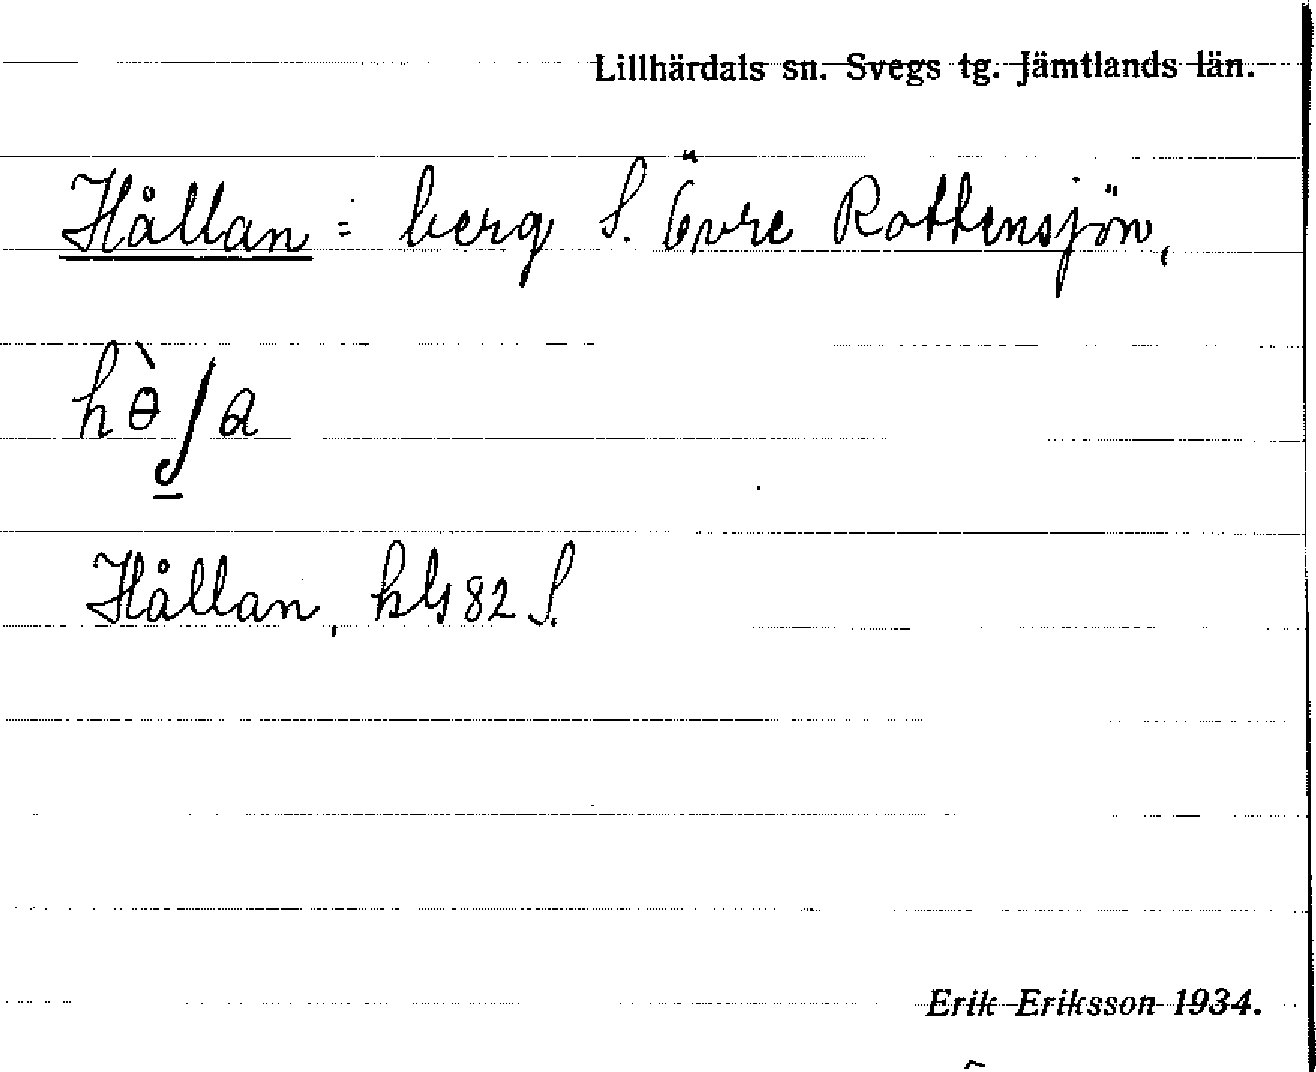 Lillhärdals sn. Svegs tg. Jämtlands län.
Hållan = berg S. Övre Rottensjön,
Hållan, kbl 82 S.
Erik Eriksson 1934.